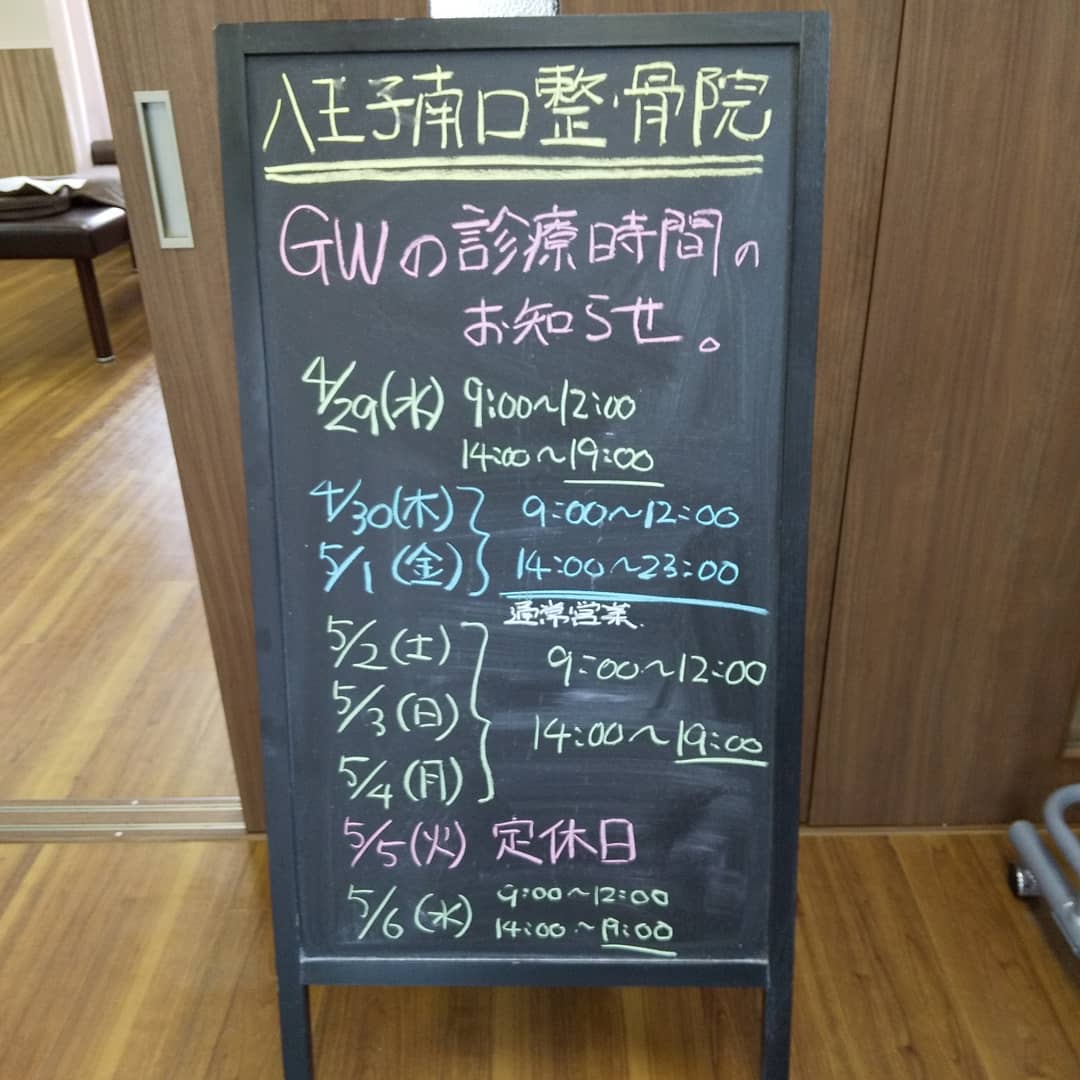 八王子南口整骨院
GWの診療時間の
お知らせ。
4/29(水) 9:00～12:00
14:00～19:00
4/30(木) 9:00～12:00
5/1(金) 14:00～23:00
通常営業
5/2(土) 9:00～12:00
5/3(日) 14:00～19:00
5/4(月)
5/5(火) 定休日
5/6(水) 9:00～12:00
14:00～19:00